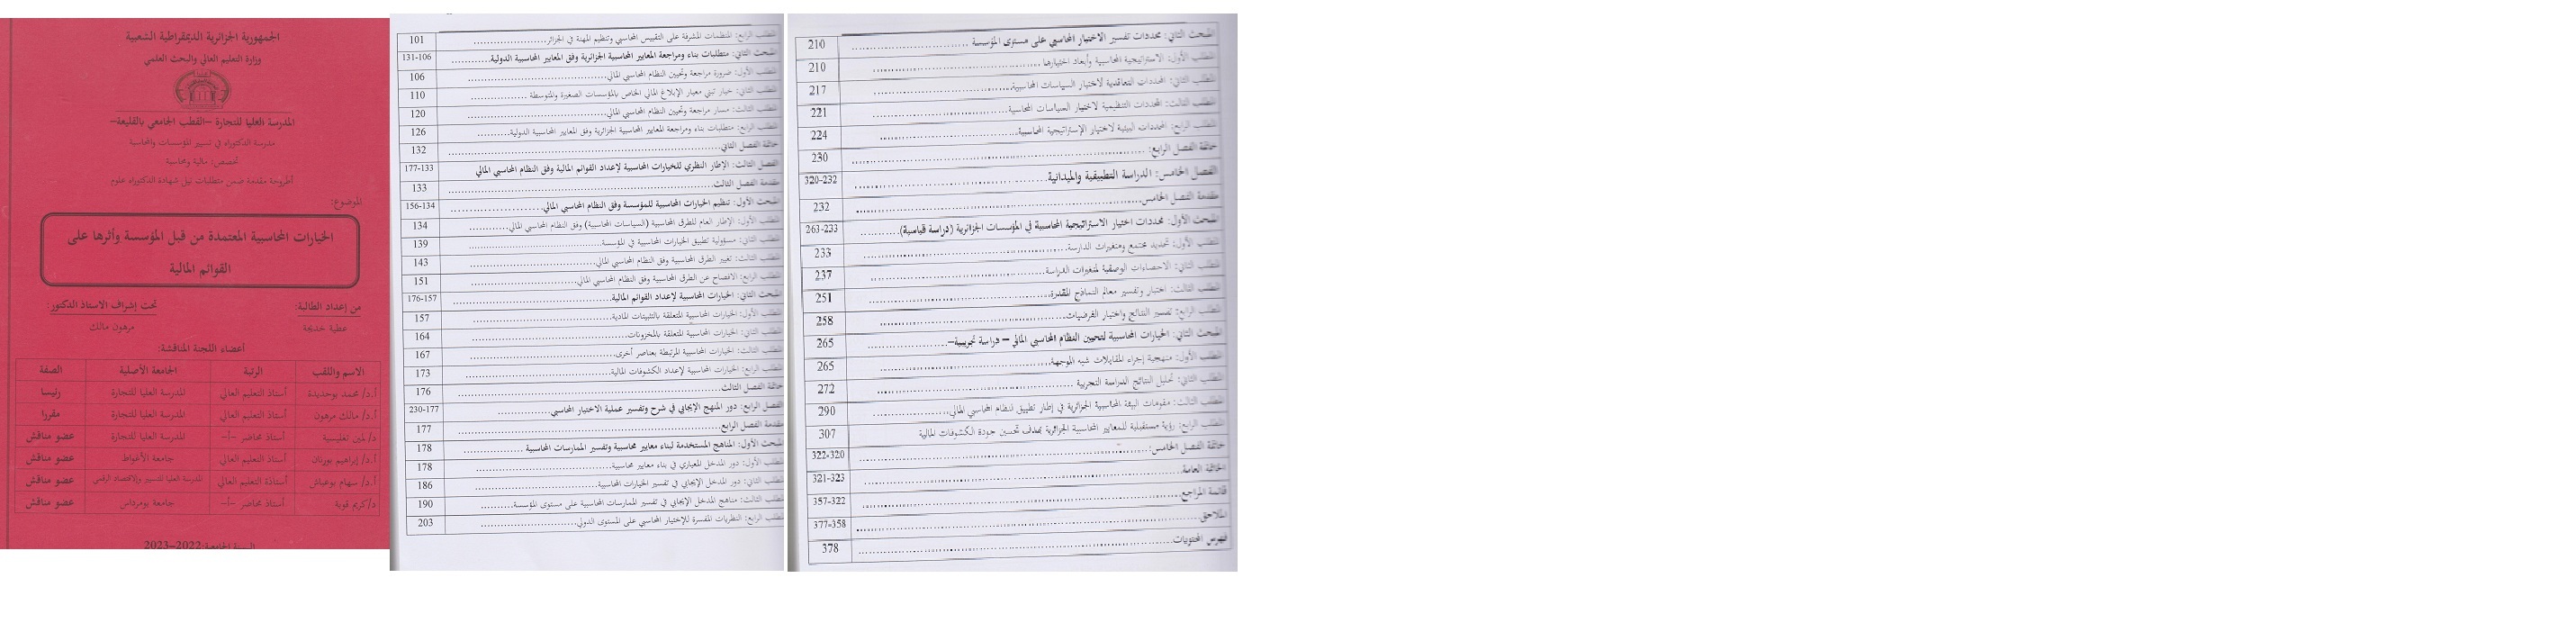 الجمهورية الجزائرية الديمقراطية الشعبية
وزارة التعليم العالي والبحث العلمي
المدرسة العليا للتجارة –القطب الجامعي بالقليعة–
مدرسة الدكتوراه في تسيير المؤسسات والمحاسبة
تخصص: مالية ومحاسبة
أطروحة مقدمة ضمن متطلبات نيل شهادة الدكتوراه علوم
الموضوع:
الخيارات المحاسبية المعتمدة من قبل المؤسسة وأثرها على
القوائم المالية
من إعداد الطالبة: تحت إشراف الاستاذ الدكتور:
عطية خديجة مرهون مالك
أعضاء اللجنة المناقشة:
الاسم واللقب الرتبة الجامعة الأصلية الصفة
أ.د/ محمد بوحديدة أستاذ التعليم العالي المدرسة العليا للتجارة رئيسا
أ.د/ مالك مرهون أستاذ التعليم العالي المدرسة العليا للتجارة مقررا
د/ لمين تغليسية أستاذ محاضر –أ– المدرسة العليا للتجارة عضو مناقش
أ.د/ إبراهيم بورنان أستاذ التعليم العالي جامعة الأغواط عضو مناقش
أ.د/ سهام بوعياش أستاذة التعليم العالي المدرسة العليا للتسيير والاقتصاد الرقمي عضو مناقش
د/ كريم قوبة أستاذ محاضر –أ– جامعة بومرداس عضو مناقش
السنة الجامعية: 2022–2023
المطلب الرابع: المنظمات المشرفة على التقييس المحاسبي وتنظيم المهنة في الجزائر 101
المبحث الثاني: متطلبات بناء ومراجعة المعايير المحاسبية الجزائرية وفق المعايير المحاسبية الدولية 106-131
المطلب الأول: ضرورة مراجعة وتحيين النظام المحاسبي المالي 106
المطلب الثاني: خيار تبني معيار الإبلاغ المالي الخاص بالمؤسسات الصغيرة والمتوسطة 110
المطلب الثالث: مسار مراجعة وتحيين النظام المحاسبي المالي 120
المطلب الرابع: متطلبات بناء ومراجعة المعايير المحاسبية الجزائرية وفق المعايير المحاسبية الدولية 126
خاتمة الفصل الثاني 132
الفصل الثالث: الإطار النظري للخيارات المحاسبية لإعداد القوائم المالية وفق النظام المحاسبي المالي 133-177
مقدمة الفصل الثالث 133
المبحث الأول: تنظيم الخيارات المحاسبية للمؤسسة وفق النظام المحاسبي المالي 134-156
المطلب الأول: الإطار العام للطرق المحاسبية (السياسات المحاسبية) وفق النظام المحاسبي المالي 134
المطلب الثاني: مسؤولية تطبيق الخيارات المحاسبية في المؤسسة 139
المطلب الثالث: تغيير الطرق المحاسبية وفق النظام المحاسبي المالي 143
المطلب الرابع: الافصاح عن الطرق المحاسبية وفق النظام المحاسبي المالي 151
المبحث الثاني: الخيارات المحاسبية لإعداد القوائم المالية 157-176
المطلب الأول: الخيارات المحاسبية المتعلقة بالتثبيتات المادية 157
المطلب الثاني: الخيارات المحاسبية المتعلقة بالمخزونات 164
المطلب الثالث: الخيارات المحاسبية المرتبطة بعناصر أخرى 167
المطلب الرابع: الخيارات المحاسبية لإعداد الكشوفات المالية 173
خاتمة الفصل الثالث 176
الفصل الرابع: دور المنهج الإيجابي في شرح وتفسير عملية الاختيار المحاسبي 177-230
مقدمة الفصل الرابع 177
المبحث الأول: المناهج المستخدمة لبناء معايير محاسبية وتفسير الممارسات المحاسبية 178
المطلب الأول: دور المدخل المعياري في بناء معايير محاسبية 178
المطلب الثاني: دور المدخل الإيجابي في تفسير الخيارات المحاسبية 186
المطلب الثالث: مناهج المدخل الإيجابي في تفسير الممارسات المحاسبية على مستوى المؤسسة 190
المطلب الرابع: النظريات المفسرة للإختيار المحاسبي على المستوى الدولي 203
المبحث الثاني: محددات تفسير الاختيار المحاسبي على مستوى المؤسسة 210
المطلب الأول: الاستراتيجية المحاسبية وأبعاد اختيارها 210
المطلب الثاني: المحددات التعاقدية لاختيار السياسات المحاسبية 217
المطلب الثالث: المحددات التنظيمية لاختيار السياسات المحاسبية 221
المطلب الرابع: المحددات البيئية لاختيار الإستراتيجية المحاسبية 224
خاتمة الفصل الرابع: 230
الفصل الخامس: الدراسة التطبيقية والميدانية 232-320
مقدمة الفصل الخامس 232
المبحث الأول: محددات اختيار الاستراتيجية المحاسبية في المؤسسات الجزائرية (دراسة قياسية) 233-263
المطلب الأول: تحديد مجتمع ومتغيرات الدارسة 233
المطلب الثاني: الاحصاءات الوصفية لمتغيرات الدراسة 237
المطلب الثالث: اختبار وتفسير معالم النماذج المقدرة 251
المطلب الرابع: تفسير النتائج واختبار الفرضيات 258
المبحث الثاني: الخيارات المحاسبية لتحيين النظام المحاسبي المالي – دراسة تجريبية– 265
المطلب الأول: منهجية إجراء المقابلات شبه الموجهة 265
المطلب الثاني: تحليل النتائج الدراسة التجريبية 272
المطلب الثالث: مقومات البيئة المحاسبية الجزائرية في إطار تطبيق لنظام المحاسبي المالي 290
المطلب الرابع: رؤية مستقبلية للمعايير المحاسبية الجزائرية بهدف تحسين جودة الكشوفات المالية 307
خاتمة الفصل الخامس: 320-322
الخاتمة العامة 323-321
قائمة المراجع 322-357
الملاحق 358-377
فهرس المحتويات 378